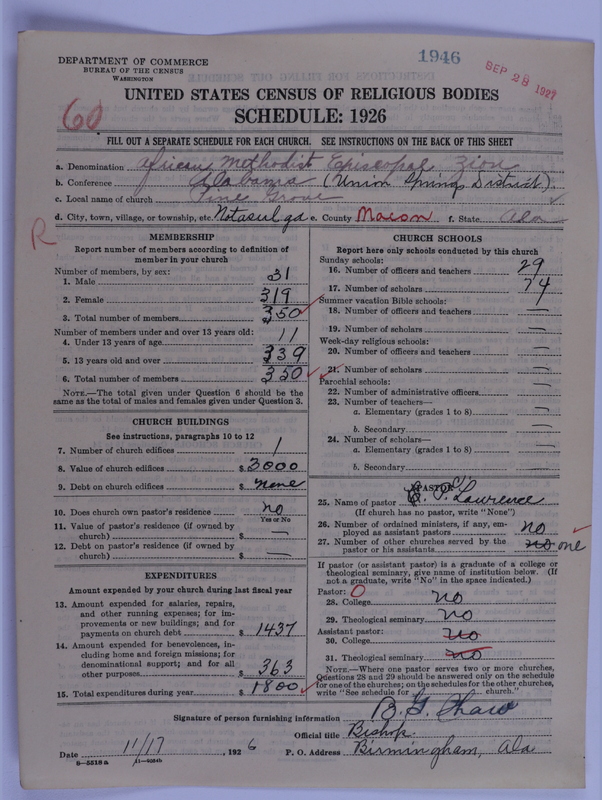 DEPARTMENT OF COMMERCE
BUREAU OF THE CENSUS
WASHINGTON
1946
SEP 28 1927
UNITED STATES CENSUS OF RELIGIOUS BODIES
SCHEDULE: 1926
60
FILL OUT A SEPARATE SCHEDULE FOR EACH CHURCH. SEE INSTRUCTIONS ON THE BACK OF THIS SHEET
a. Denomination African Methodist Episcopal Zion
b. Conference Alabama (Union Springs District)
c. Local name of church Pine Grove
d. City, town, village, or township, etc. Notasulga e. County Macon f. State Ala
R
MEMBERSHIP
Report number of members according to definition of member in your church
Number of members, by sex:
1. Male 31
2. Female 319
3. Total number of members 350
Number of members under and over 13 years old:
4. Under 13 years of age 11
5. 13 years old and over 339
6. Total number of members 350
NOTE.—The total given under Question 6 should be the same as the total of males and females given under Question 3.
CHURCH BUILDINGS
See instructions, paragraphs 10 to 12
7. Number of church edifices 1
8. Value of church edifices $ 3000
9. Debt on church edifices $ none
10. Does church own pastor's residence no
Yes or No
11. Value of pastor's residence (if owned by church) $ —
12. Debt on pastor's residence (if owned by church) $ —
EXPENDITURES
Amount expended by your church during last fiscal year
13. Amount expended for salaries, repairs, and other running expenses; for improvements or new buildings; and for payments on church debt $ 1437
14. Amount expended for benevolences, including home and foreign missions; for denominational support; and for all other purposes $ 363
15. Total expenditures during year $ 1800
CHURCH SCHOOLS
Report here only schools conducted by this church
Sunday schools:
16. Number of officers and teachers 29
17. Number of scholars 74
Summer vacation Bible schools:
18. Number of officers and teachers —
19. Number of scholars —
Week-day religious schools:
20. Number of officers and teachers —
21. Number of scholars —
Parochial schools:
22. Number of administrative officers —
23. Number of teachers—
a. Elementary (grades 1 to 8) —
b. Secondary —
24. Number of scholars—
a. Elementary (grades 1 to 8) —
b. Secondary —
PASTOR
25. Name of pastor Lawrence
(If church has no pastor, write "None")
26. Number of ordained ministers, if any, employed as assistant pastors no
27. Number of other churches served by the pastor or his assistants no one
If pastor (or assistant pastor) is a graduate of a college or theological seminary, give name of institution below. (If not a graduate, write "No" in the space indicated.)
Pastor: O
28. College no
29. Theological seminary no
Assistant pastor:
30. College no
31. Theological seminary no
NOTE.—Where one pastor serves two or more churches, Questions 28 and 29 should be answered only on the schedule for one of the churches; on the schedules for the other churches, write "See schedule for church."
Signature of person furnishing information B. G. Shaw
Official title Bishop
Date 11/17, 1926 P. O. Address Birmingham, Ala
8—5518a 11—9054b